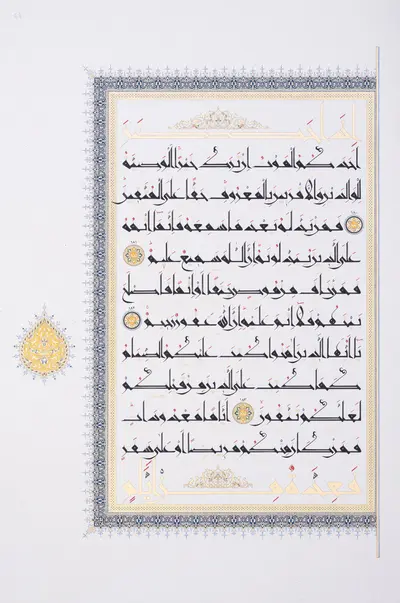 إذا حضر
أحدكم الموت إن ترك خيرا الوصية
للوالدين والأقربين بالمعروف حقا على المتقين
فمن بدله بعد ما سمعه فإنما إثمه
على الذين يبدلونه إن الله سميع عليم
فمن خاف من موص جنفا أو إثما فأصلح
بينهم فلا إثم عليه إن الله غفور رحيم
يا أيها الذين آمنوا كتب عليكم الصيام
كما كتب على الذين من قبلكم
لعلكم تتقون أياما معدودات
فمن كان منكم مريضا أو على سفر
فعدة من أيام